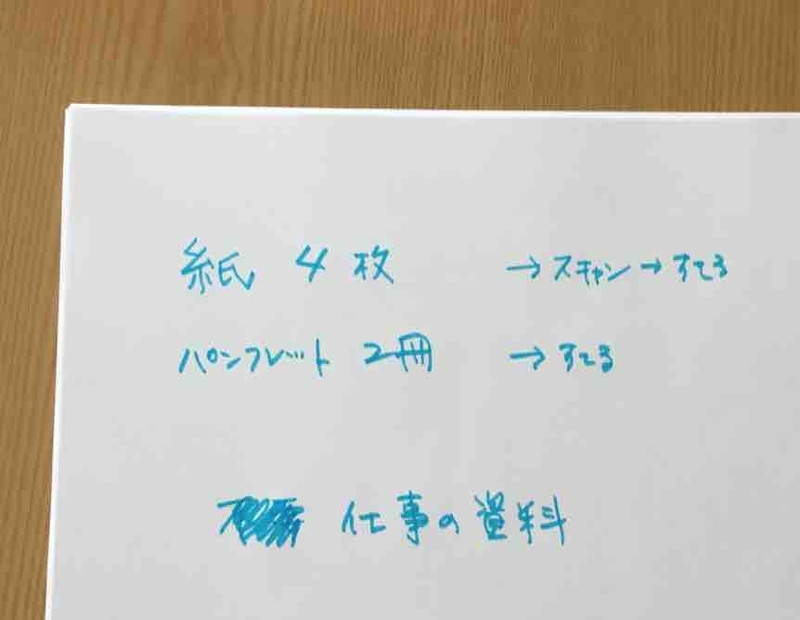 紙 4枚 →スキャン→すてる
パンフレット 2冊 →すてる
仕事の資料